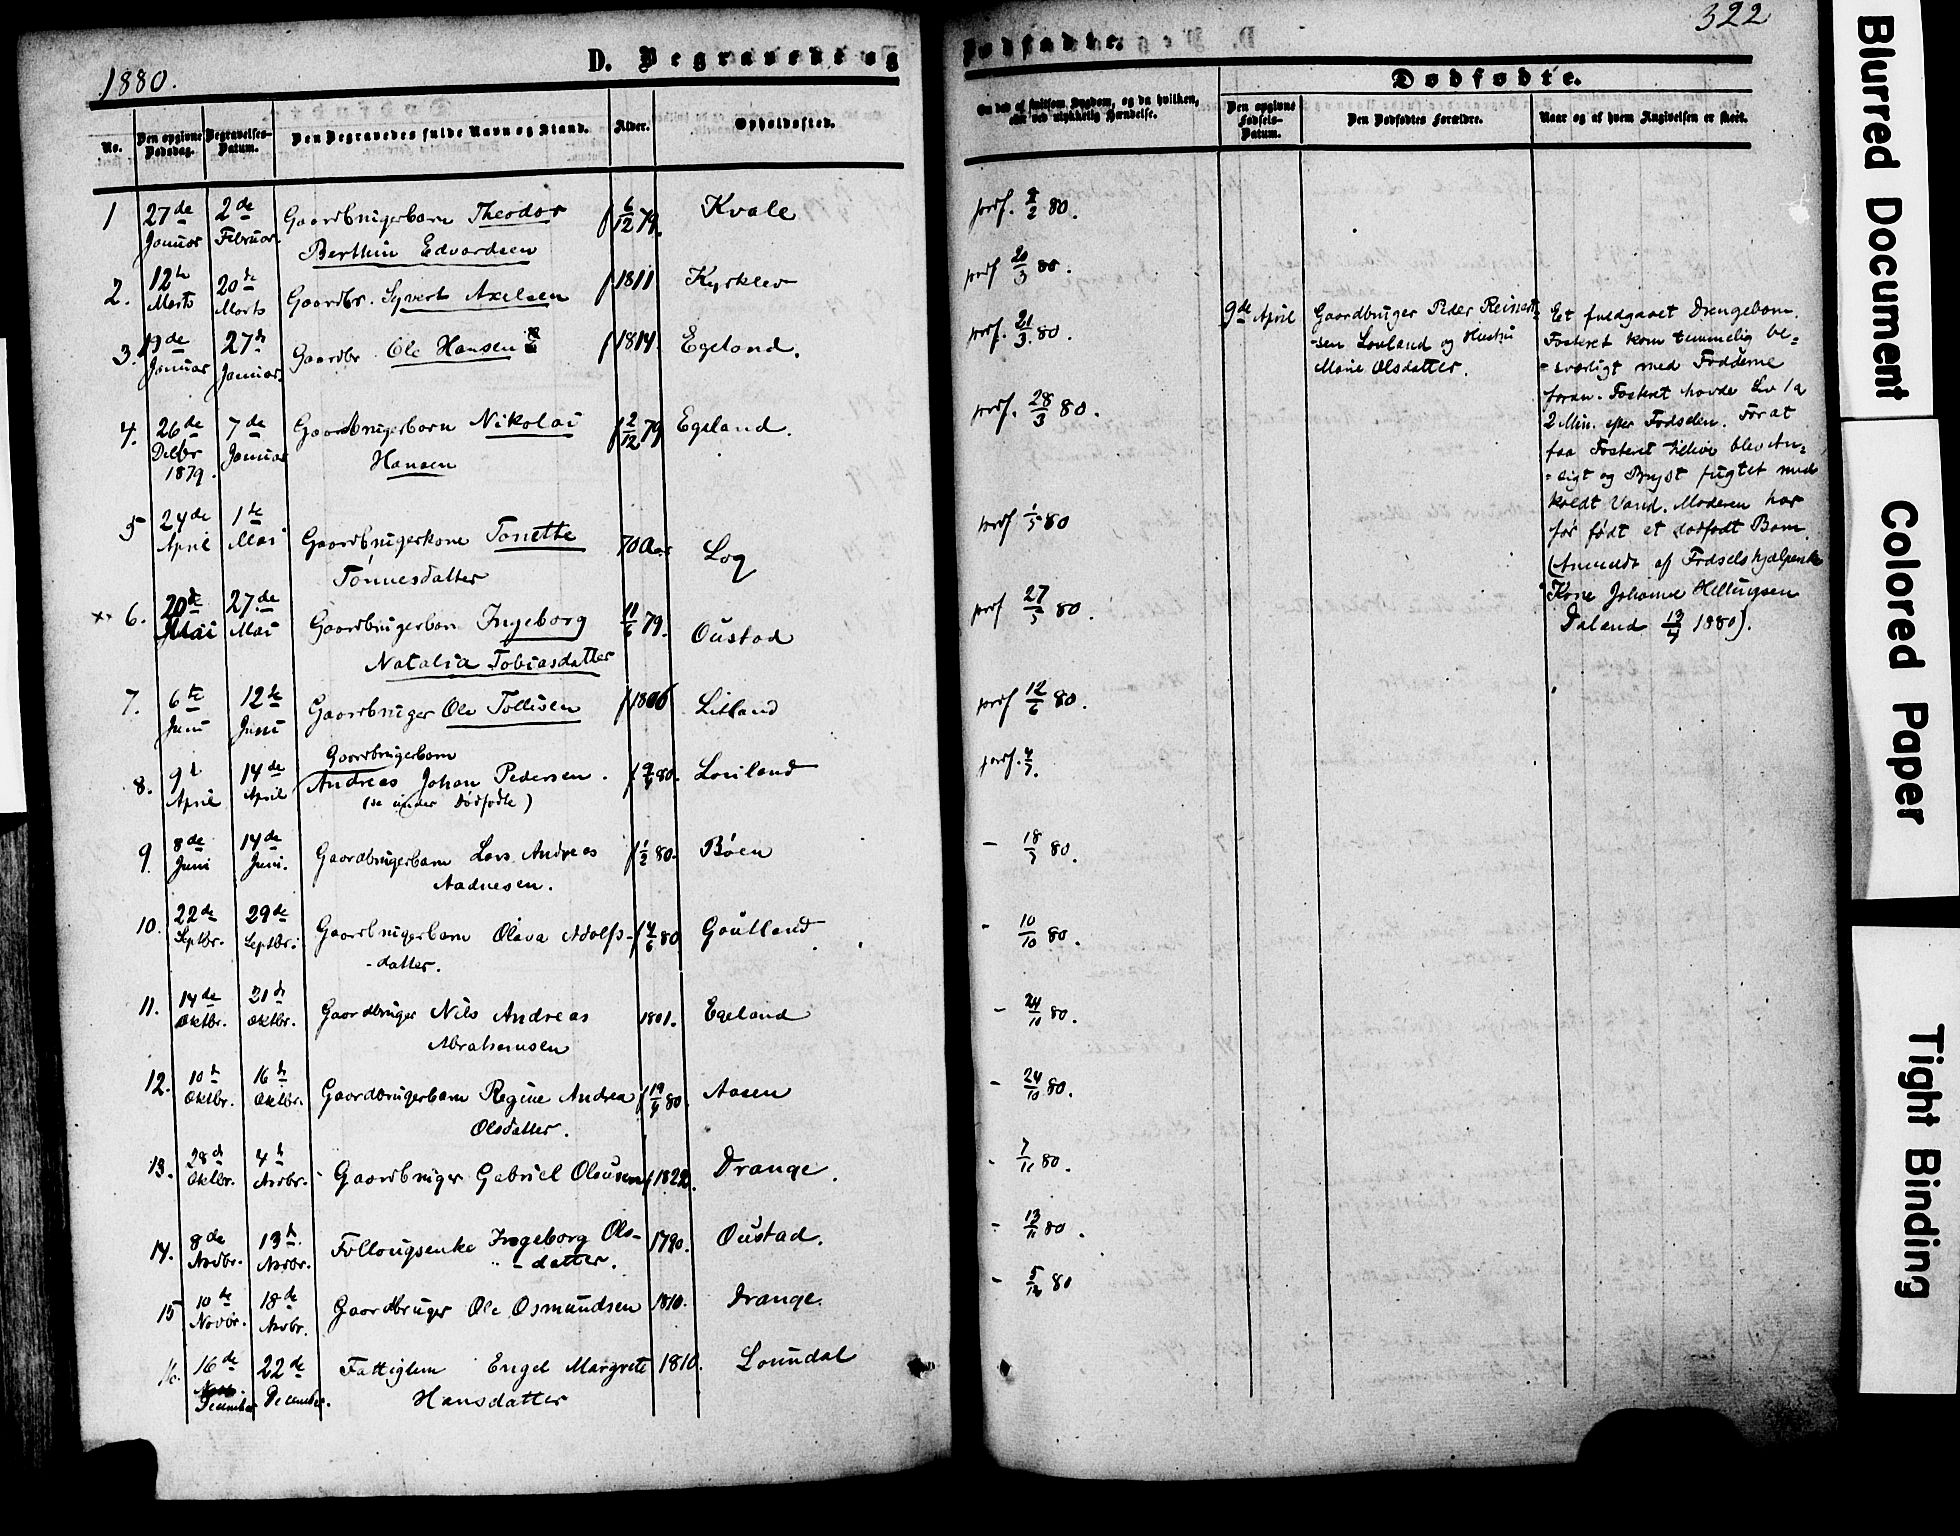 1880.
D. Begravede og
No.
Den opgivne Dødsdag.
Begravelses-Datum.
Den Begravedes fulde Navn og Stand.
Alder.
Opholdssted.
1 27de Januar 2de Februar Gaardbrugerbarn Theodor f 6/12 79. Kvale
Berthin Edvardsen
2. 12te Marts 20de Marts Gaardbr. Syvert Axelsen f 1811
3. 19de Januar 27de Januar. Gaardbr. Ole Hansen f 1814. Egeland.
4. 26de Decbr 1879. 7de Januar Gaardbrugerbarn Nikolai f 2/12 79 Egeland.
Hansen
5 24de April 1te Mai Gaardbrugerkone Tonette 70 Aar Log
Tønnesdatter
6. 20de Mai 27de Mai Gaardbrugerbarn Ingeborg 11/6 79. Oustad
Natalia Tobiasdatter
7. 6te Juni 12te Juni Gaardbruger Ole Tollisen f 1806 Litland
Gaardbrugerbarn
8. 9de April 14de April Andreas Johan Pedersen. f 9/4 80. Louland
(se under Dødfødte)
9. 8de Juni 14de Juni. Gaardbrugerbarn Lars Andreas f 1/2 80. Bøen
Aadnesen.
10. 22de Septbr. 29de Septbr. Gaardbrugerbarn Olava Adolfs- f 4/6 80 Goutland
-datter.
11. 14de Oktbr. 21de Oktbr. Gaardbruger Nils Andreas 1801. Egeland
Abrahamsen
12. 10de Oktbr. 16de Oktbr. Gaardbrugerbarn Regine Andrea 80. Aasen
Olsdatter.
13. 28de Oktbr. 4de Novbr. Gaardbruger Gabriel Olausen f 1822. Drange.
14. 8de Novbr. 13de Novbr. Føllougsenke Ingeborg Ols- 1790. Oustad.
-datter.
15 10de Novbr. 18de Novbr. Gaardbruger Ole Osmundsen 1810. Drange.
16. 16de December 22de December. Fattiglem Engel Margrete 1810. Loundal
Hansdatter
322
Dødfødte.
Om død af smitsom Sygdom, og da hvilken,
eller ved ulykkelig Hændelse.
Dødfødte.
Den opgivne Fødsels-Datum.
Den Dødfødtes Forældre.
Naar og af hvem Angivelsen er skeet.
prof. 2/2 80.
prof 20/3 80.
prof. 21/3. 80.
prof. 28/3 80.
prof 1/5 80
prof 27/5 80.
prof 12/6 80.
prof. 4/7.
- 18/7 80.
- 10/10 80.
- 24/10 80.
- 24/10 80.
- 7/11 80.
- 13/11 80.
- 5/12 80
9de April
Gaardbruger Peder Reinert-
-sen Louland og Hustru
Marie Olsdatter.
Et fuldgaaet Drengebarn.
Fosteret kom temmelig be-
-sværligt med Fødderne
foran. Fosteret havde Liv 1 a
2 Min. efter Fødselen. For at
faa Fosteret tillive blev An-
-sigt og Bryst fugtet med
koldt Vand. Moderen har
før født et dødfødt Barn.
(Anmeldt af Fødselshjælpende
Kone Johanne Helliugsen
Daland 13/4 1880).
Blurred Document
Colored Paper
Tight Binding